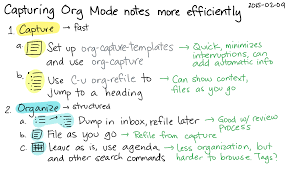 Capturing Org Mode notes more efficiently 2015-02-09
1. Capture → fast
a. Set up org-capture-templates and use org-capture → Quick, minimizes interruptions, can add automatic info
b. Use C-u org-refile to jump to a heading → Can show context, files as you go
2. Organize → structured
a. Dump in inbox, refile later → Good w/ review process
b. File as you go → Refile from capture
c. Leave as is, use agenda, and other search commands → Less organization, but harder to browse Tags?